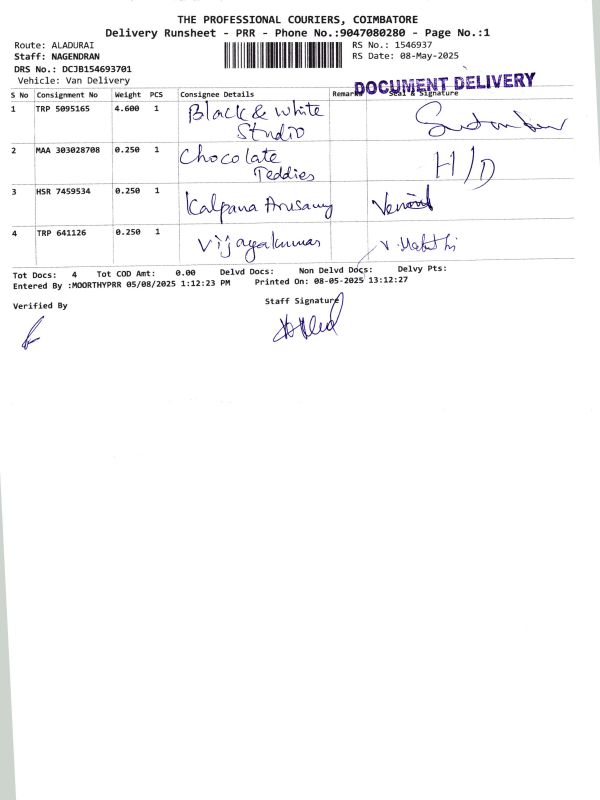 THE PROFESSIONAL COURIERS, COIMBATORE
Delivery Runsheet - PRR - Phone No.:9047080280 - Page No.:1
Route: ALADURAI
Staff: NAGENDRAN
DRS No.: DCJB154693701
Vehicle: Van Delivery
RS No.: 1546937
RS Date: 08-May-2025
DOCUMENT DELIVERY
S No Consignment No Weight PCS Consignee Details Remarks Seal & Signature
1 TRP 5095165 4.600 1 Black & White
Studio
2 MAA 303028708 0.250 1 Chocolate H/D
Teddies
3 HSR 7459534 0.250 1 Kalpana
4 TRP 641126 0.250 1 Vijayakumar
Tot Docs: 4 Tot COD Amt: 0.00 Delvd Docs: Non Delvd Docs: Delvy Pts:
Entered By :MOORTHYPRR 05/08/2025 1:12:23 PM Printed On: 08-05-2025 13:12:27
Verified By Staff Signature